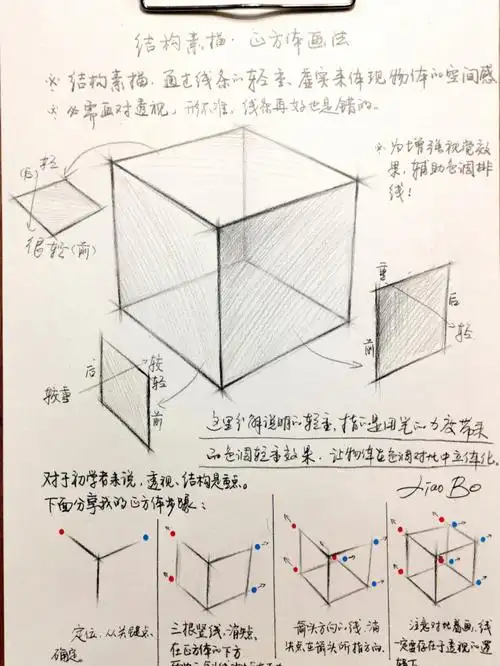 结构素描·正方体画法
※ 结构素描·通过线条的轻重、虚实来体现物体的空间感
※ 必需画对透视，形不准，线条再好也是错的。
※ 为增强视觉效
果，辅助色调排
线！
轻
(后)
很轻(前)
重
后
前
轻
后
较轻
较重
前
这里分解说明的轻重，指的是用笔的力度带来
的色调轻重效果，让物体在色调对比中立体化。
Jiao Bo
对于初学者来说，透视、结构是重点。
下面分享我的正方体步骤：
定位，从关键点
确定。
三根竖线，消失点
在正方体的下方
箭头方向的线，消
失点在箭头所指方向。
注意对比着画，线
一定要存在于透视的逻
辑下